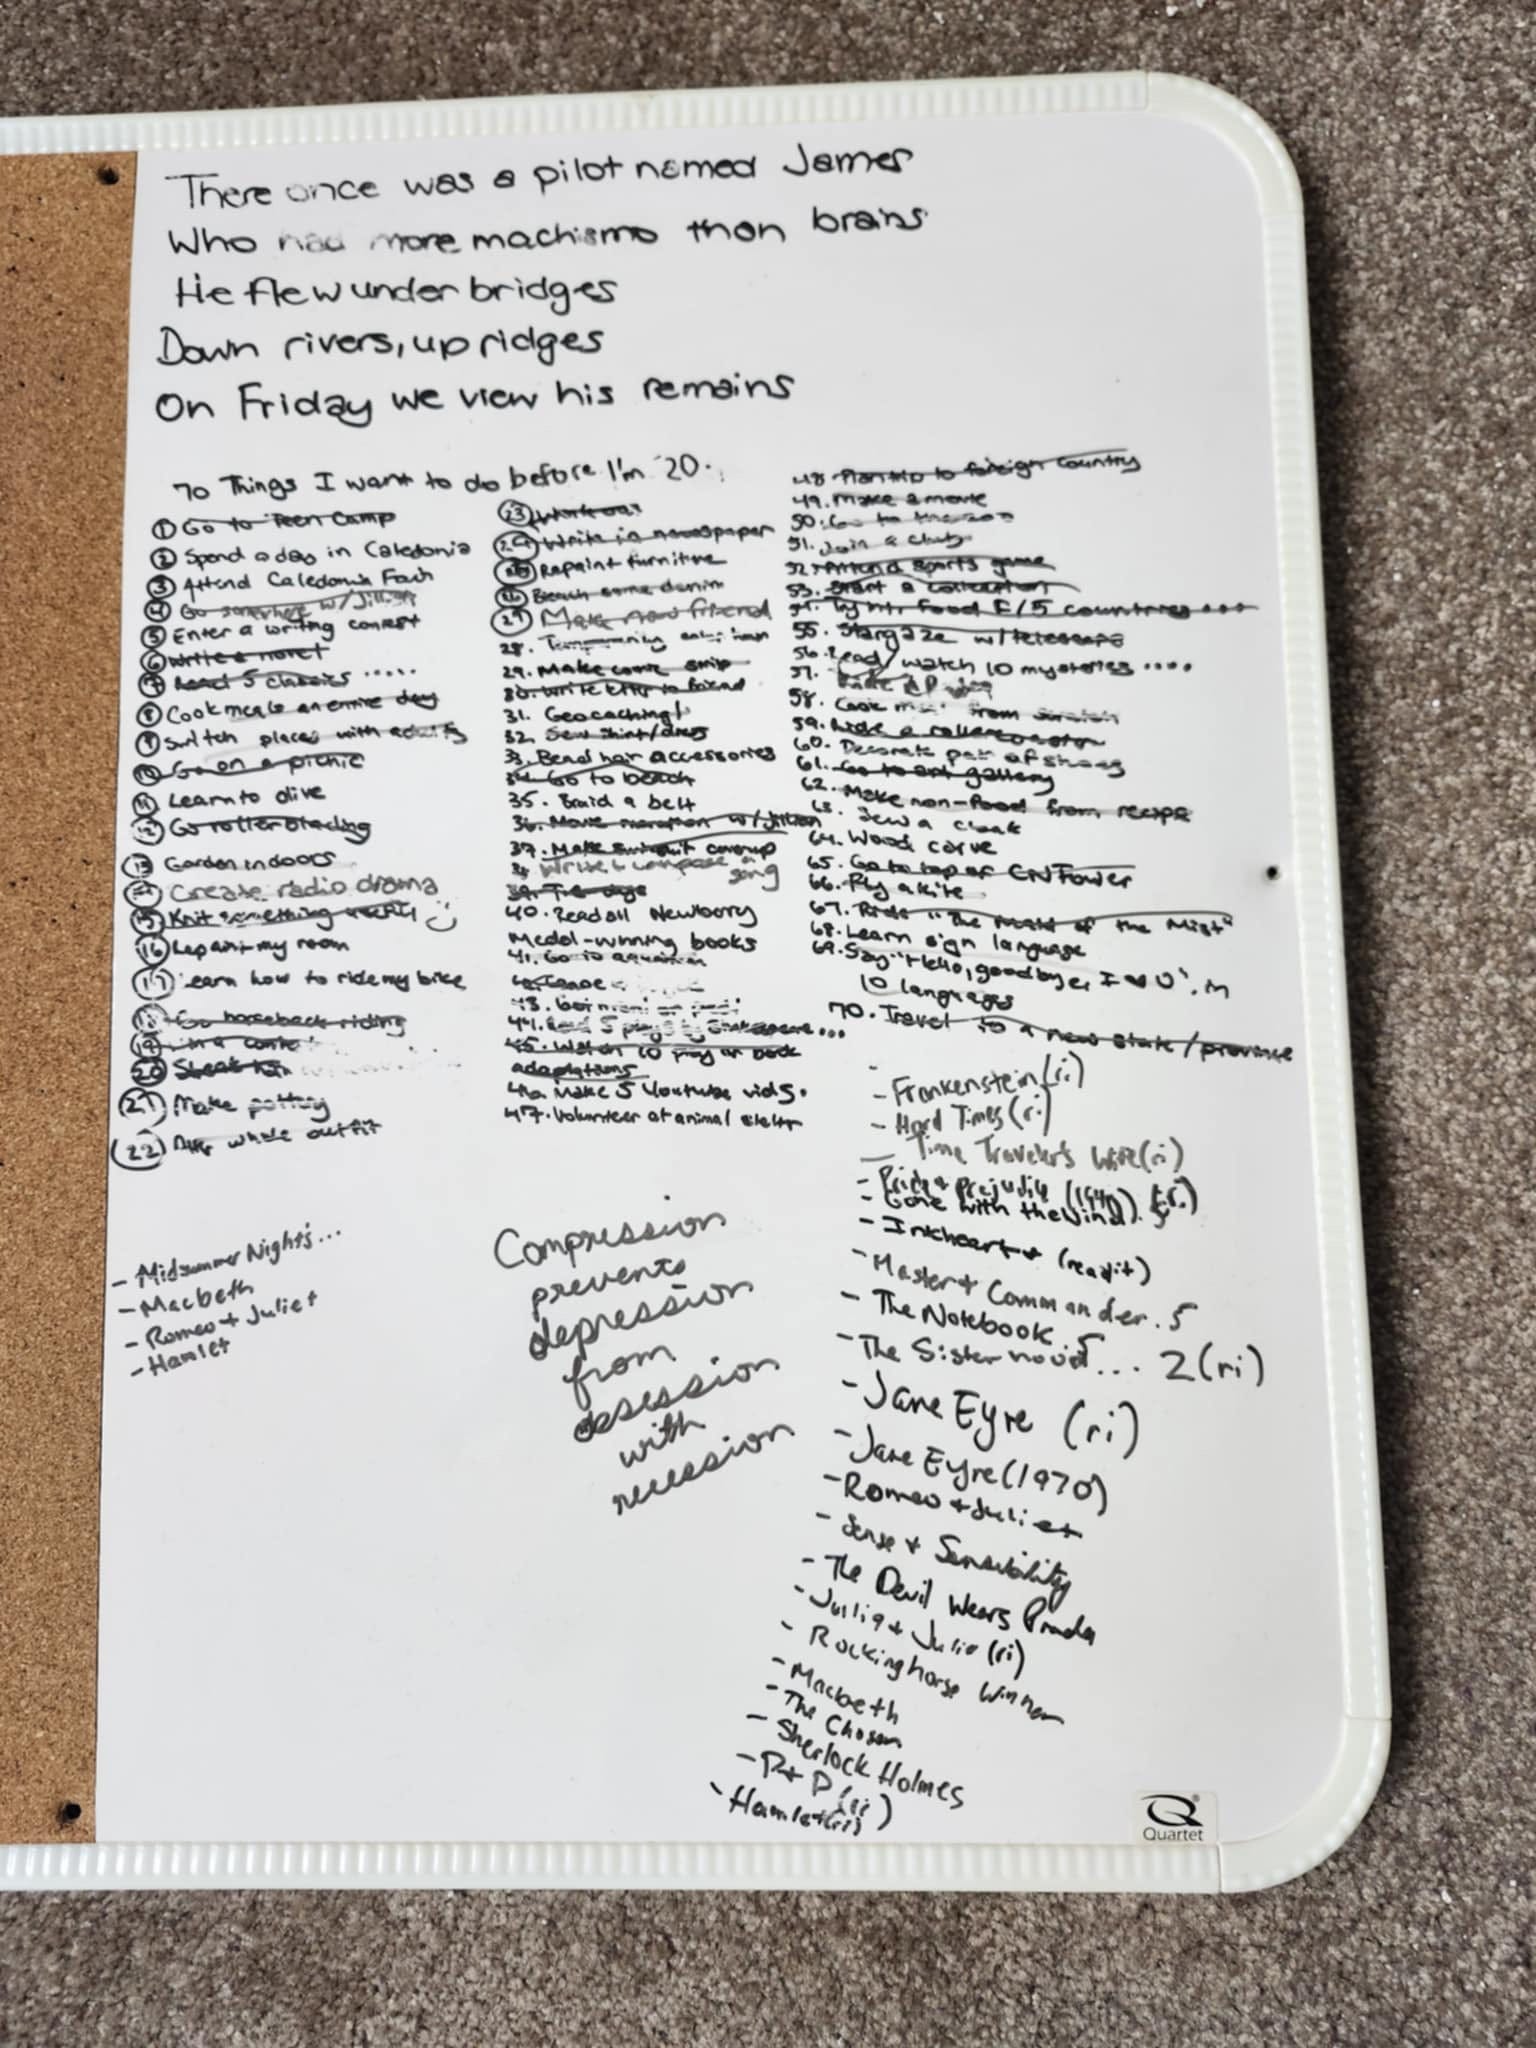 There once was a pilot named James
Who had more machismo than brains
He flew under bridges
Down rivers, up ridges
On Friday we view his remains
70 Things I want to do before I'm 20.
1 Go to Teen Camp
2 Spend a day in Caledonia
3 Attend Caledonia Fair
4 Go somewhere w/ Jillian
5 Enter a writing contest
6 Write a novel
7 Read 5 classics .....
8 Cook meals an entire day
9 Switch places with adults
10 Go on a picnic
11 Learn to dive
12 Go rollerblading
13 Garden indoors
14 Create radio drama
15 Knit something
16 Repaint my room
17 Learn how to ride my bike
18 Go horseback riding
19 in a
20
21 Make pottery
22 whole outfit
23 Work out
24 Write in newspaper
25 Repaint furniture
26 Bleach some denim
27 Make new friend
28.
29. Make comic strip
30. Write letter to friend
31. Geocaching!
32. Sew shirt/dress
33. Bead hair accessories
34. Go to beach
35. Braid a belt
36. Movie marathon w/ Jillian
37. Make swimsuit coverup
38. Write & compose a song
39. Tie dye
40. Read all Newberry
Medal-winning books
41. Go to aquarium
42. Canoe
43.
44. Read 5 plays by Shakespeare...
45. Watch 10 play or book
adaptations
46. Make 5 Youtube vids.
47. Volunteer at animal shelter
48. Plan trip to foreign country
49. Make a movie
50. Go to the zoo
51. Join a club
52. Attend sports game
53. Start a collection
54. Food F/ 5 countries ...
55. Stargaze w/ telescope
56. Read/watch 10 mysteries ....
57.
58. Cook from scratch
59. Ride a rollercoaster
60. Decorate pair of shoes
61. Go to art gallery
62. Make non-food from recipe
63. Sew a cloak
64. Wood carve
65. Go to top of CN Tower
66. Fly a kite
67. Ride "The Maid of the Mist"
68. Learn sign language
69. Say "Hello, goodbye, I ♥ U", in
10 languages
70. Travel to a new state/province
- Frankenstein (ri)
- Hard Times (ri)
- Time Traveler's Wife (ri)
- Pride & Prejudice (1940)
- Gone with the Wind .5
- Inkheart (read it)
- Master & Commander .5
- The Notebook .5
- The Sister ... 2 (ri)
- Jane Eyre (ri)
- Jane Eyre (1970)
- Romeo & Juliet
- Sense & Sensibility
- The Devil Wears Prada
- Julie & Julia (ri)
- Rockinghorse Winner
- Macbeth
- The Chosen
- Sherlock Holmes
- P & P (ri)
- Hamlet (ri)
- Midsummer Night's ...
- Macbeth
- Romeo & Juliet
- Hamlet
Compression
prevents
depression
from
obsession
with
recession
Quartet